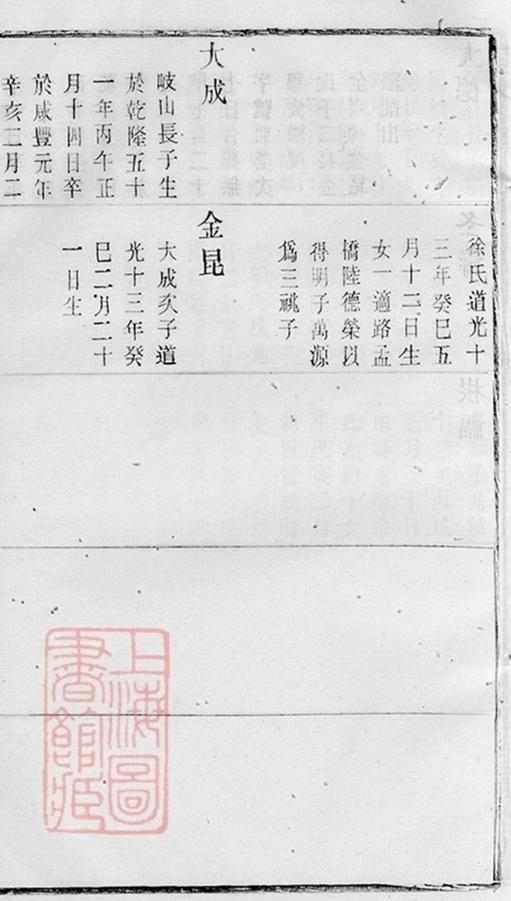 大成
岐山長子生
於乾隆五十
一年丙午正
月十四日卒
於咸豐元年
辛亥三月二
徐氏道光十
三年癸巳五
月十二日生
女一適路孟
橋陸德榮以
得明子萬源
爲三祧子
金昆
大成次子道
光十三年癸
巳二月二十
一日生
上海圖
書館藏